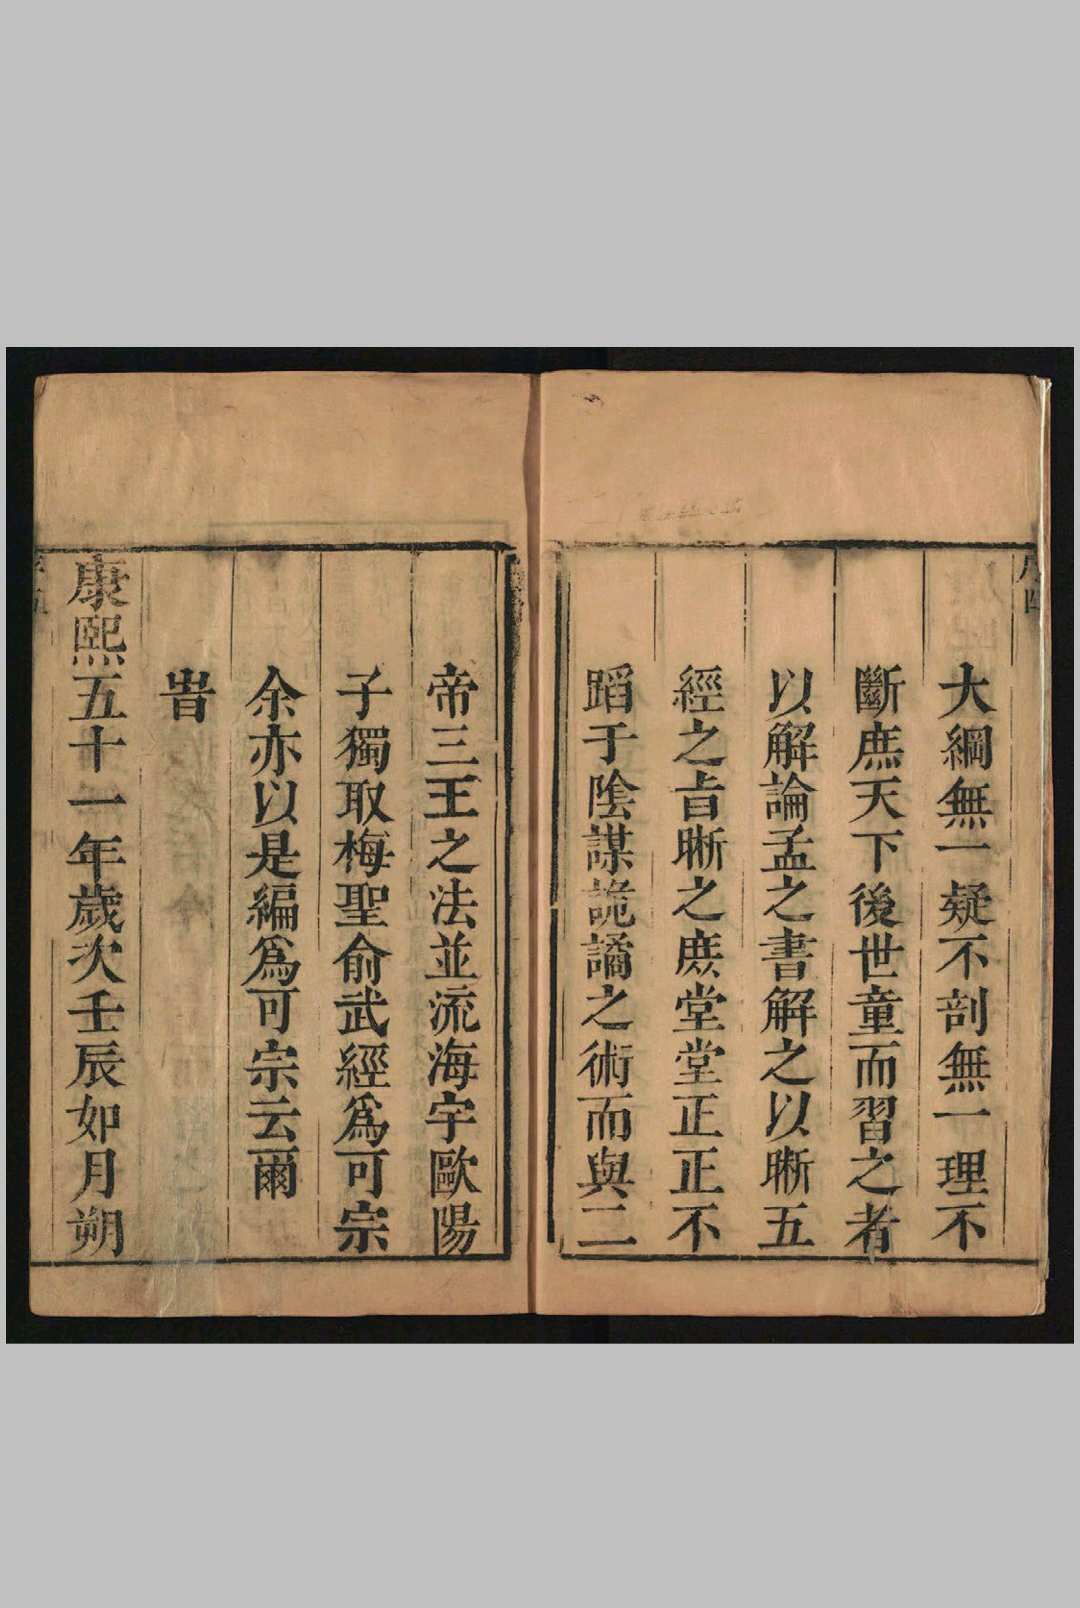 大綱無一疑不剖無一理不
斷庶天下後世童而習之者
以解論孟之書解之以晰五
經之㫖晰之庻堂堂正正不
蹈于陰謀詭譎之術而與二
帝三王之法並流海宇歐陽
子獨取梅聖俞武經爲可宗
余亦以是編爲可宗云爾
旹
康熙五十一年歲次壬辰如月朔